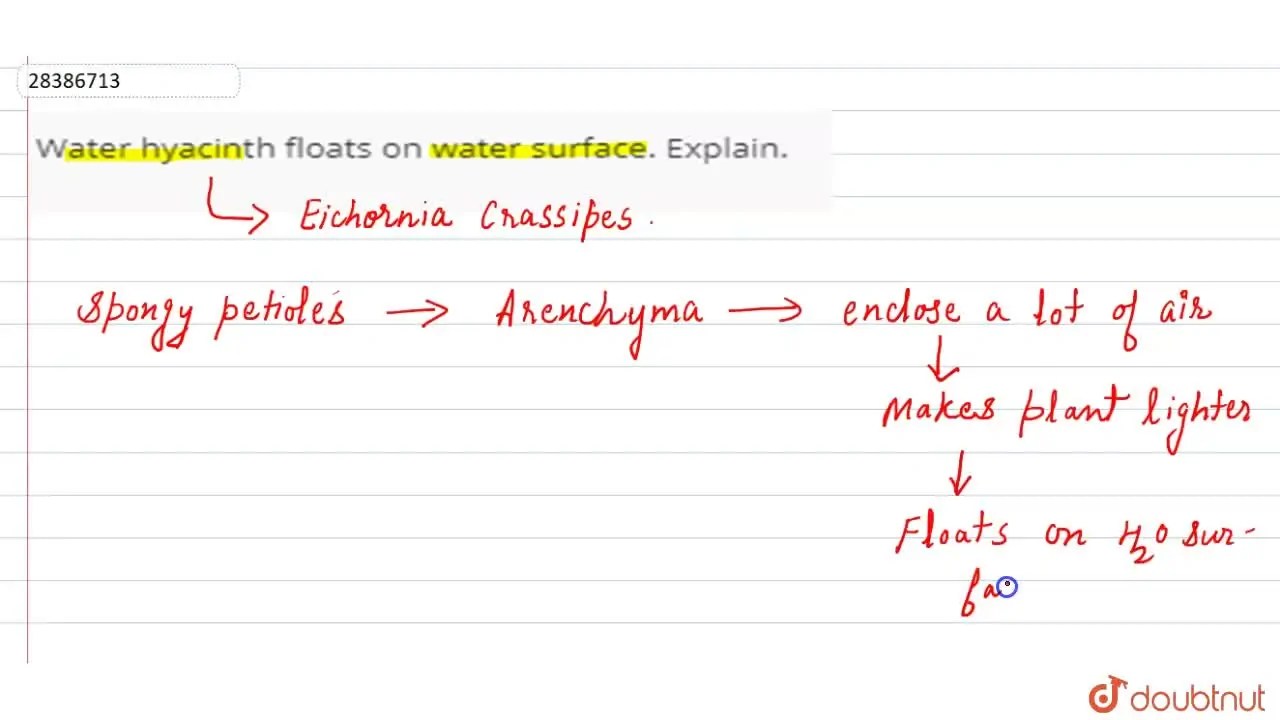 28386713
Water hyacinth floats on water surface. Explain.
Eichornia Crassipes.
Spongy petioles → Arenchyma → enclose a lot of air
Makes plant lighter
Floats on H₂O sur-
fa
doubtnut